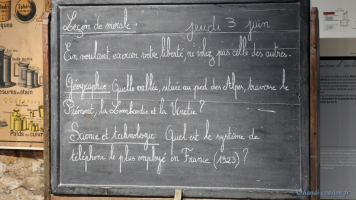 Leçon de morale.
jeudi 3 juin
En voulant exercer votre liberté, ne volez pas celle des autres.
Géographie: Quelle vallée, située au pied des Alpes, traverse le
Piémont, la Lombardie et la Vénétie?
Science et technologie: Quel est le système de
téléphone le plus employé en France (1923)?